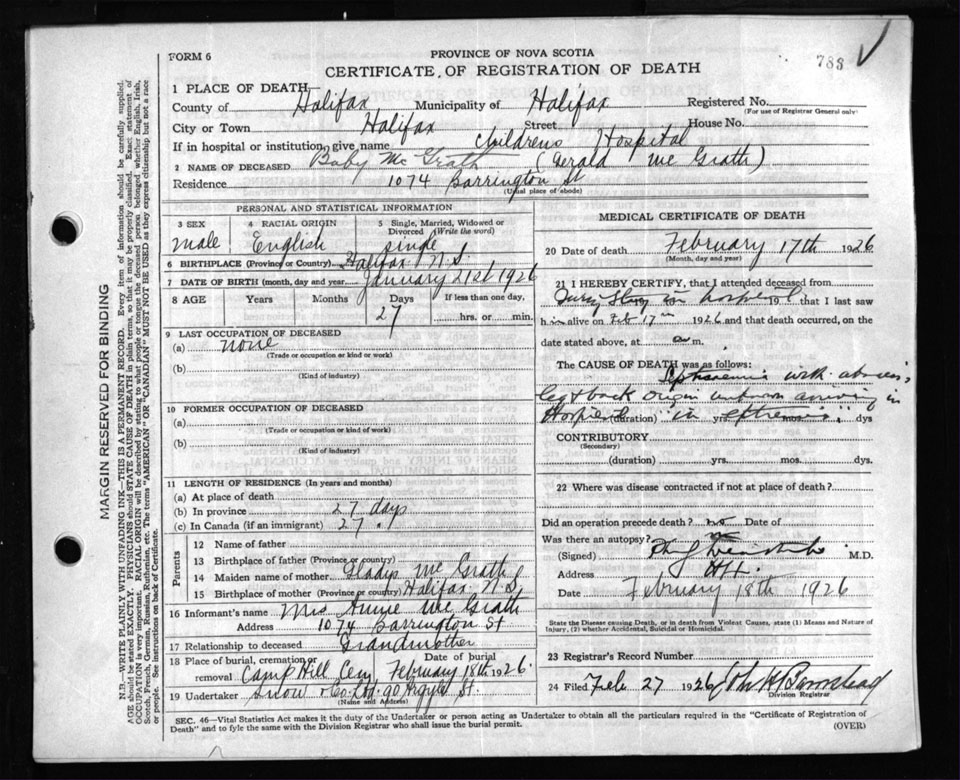 FORM 6
PROVINCE OF NOVA SCOTIA
783
CERTIFICATE OF REGISTRATION OF DEATH
1 PLACE OF DEATH
County of Halifax Municipality of Halifax Registered No.
(For use of Registrar General only)
City or Town Halifax Street House No.
If in hospital or institution, give name Childrens Hospital
2 NAME OF DECEASED Baby Mc Grath (Gerald Mc Grath)
Residence 1074 Barrington St
(Usual place of abode)
PERSONAL AND STATISTICAL INFORMATION
3 SEX 4 RACIAL ORIGIN 5 Single, Married, Widowed or Divorced (Write the word)
male English single
6 BIRTHPLACE (Province or Country) Halifax N.S.
7 DATE OF BIRTH (month, day and year) January 21st 1926
8 AGE Years Months Days If less than one day,
27 hrs. or min.
9 LAST OCCUPATION OF DECEASED
(a) none
(Trade or occupation or kind or work)
(b)
(Kind of industry)
10 FORMER OCCUPATION OF DECEASED
(a)
(Trade or occupation or kind of work)
(b)
(Kind of industry)
11 LENGTH OF RESIDENCE (In years and months)
(a) At place of death
(b) In province 27 days
(c) In Canada (if an immigrant) 27
Parents
12 Name of father
13 Birthplace of father (Province or country)
14 Maiden name of mother Gladys Mc Grath
15 Birthplace of mother (Province or country) Halifax N S
16 Informant's name Mrs Annie Mc Grath
Address 1074 Barrington St
17 Relationship to deceased Grandmother
18 Place of burial, cremation or removal Camp Hill Cem Date of burial February 18th 1926
19 Undertaker Snow & Co Ltd. 90 Argyle St.
(Name and Address)
MEDICAL CERTIFICATE OF DEATH
20 Date of death February 17th 1926
(Month, day and year)
21 I HEREBY CERTIFY, that I attended deceased from
During stay in hospital 19 that I last saw
h im alive on Feb 17th 1926 and that death occurred, on
date stated above, at m.
The CAUSE OF DEATH was as follows:
Septicaemia with abscess,
leg & back origin unknown arriving in
Hospital (duration) "in yrs. extremis". mos. dys
CONTRIBUTORY
(Secondary)
(duration) yrs. mos. dys
22 Where was disease contracted if not at place of death?
Did an operation precede death? no Date of
Was there an autopsy? no
(Signed) M.D.
Address Hfx.
Date February 18th 1926
State the Disease causing Death, or in death from Violent Causes, state (1) Means and Nature of
Injury, (2) whether Accidental, Suicidal or Homicidal.
23 Registrar's Record Number
24 Filed Feb 27 1926 John H Barnstead
Division Registrar
SEC. 46—Vital Statistics Act makes it the duty of the Undertaker or person acting as Undertaker to obtain all the particulars required in the "Certificate of Registration of
Death" and to fyle the same with the Division Registrar who shall issue the burial permit.
(OVER)
MARGIN RESERVED FOR BINDING
N.B.—WRITE PLAINLY WITH UNFADING INK—THIS IS A PERMANENT RECORD. Every item of information should be carefully supplied.
AGE should be stated EXACTLY. PHYSICIANS should STATE CAUSE OF DEATH in plain terms, so that it may be properly classified. Exact statement of
OCCUPATION is very important. RACIAL ORIGIN will be described by stating to what people or tongue the deceased person belonged whether English, Irish,
Scotch, French, German, Russian, Ruthenian, etc. The terms "AMERICAN" OR "CANADIAN" MUST NOT BE USED as they express citizenship but not a race
or people. See instructions on back of Certificate.